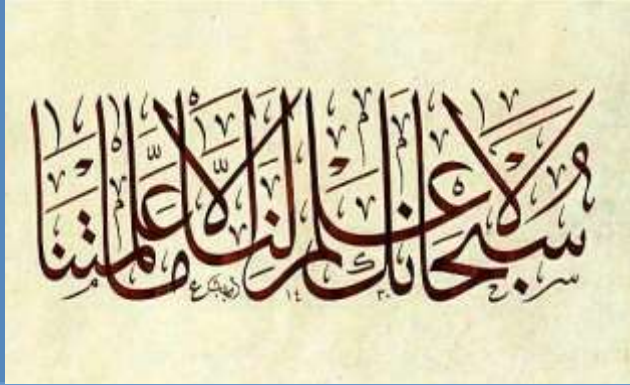 سبحانك لا علم لنا إلا ما علمتنا
١٤٣٠